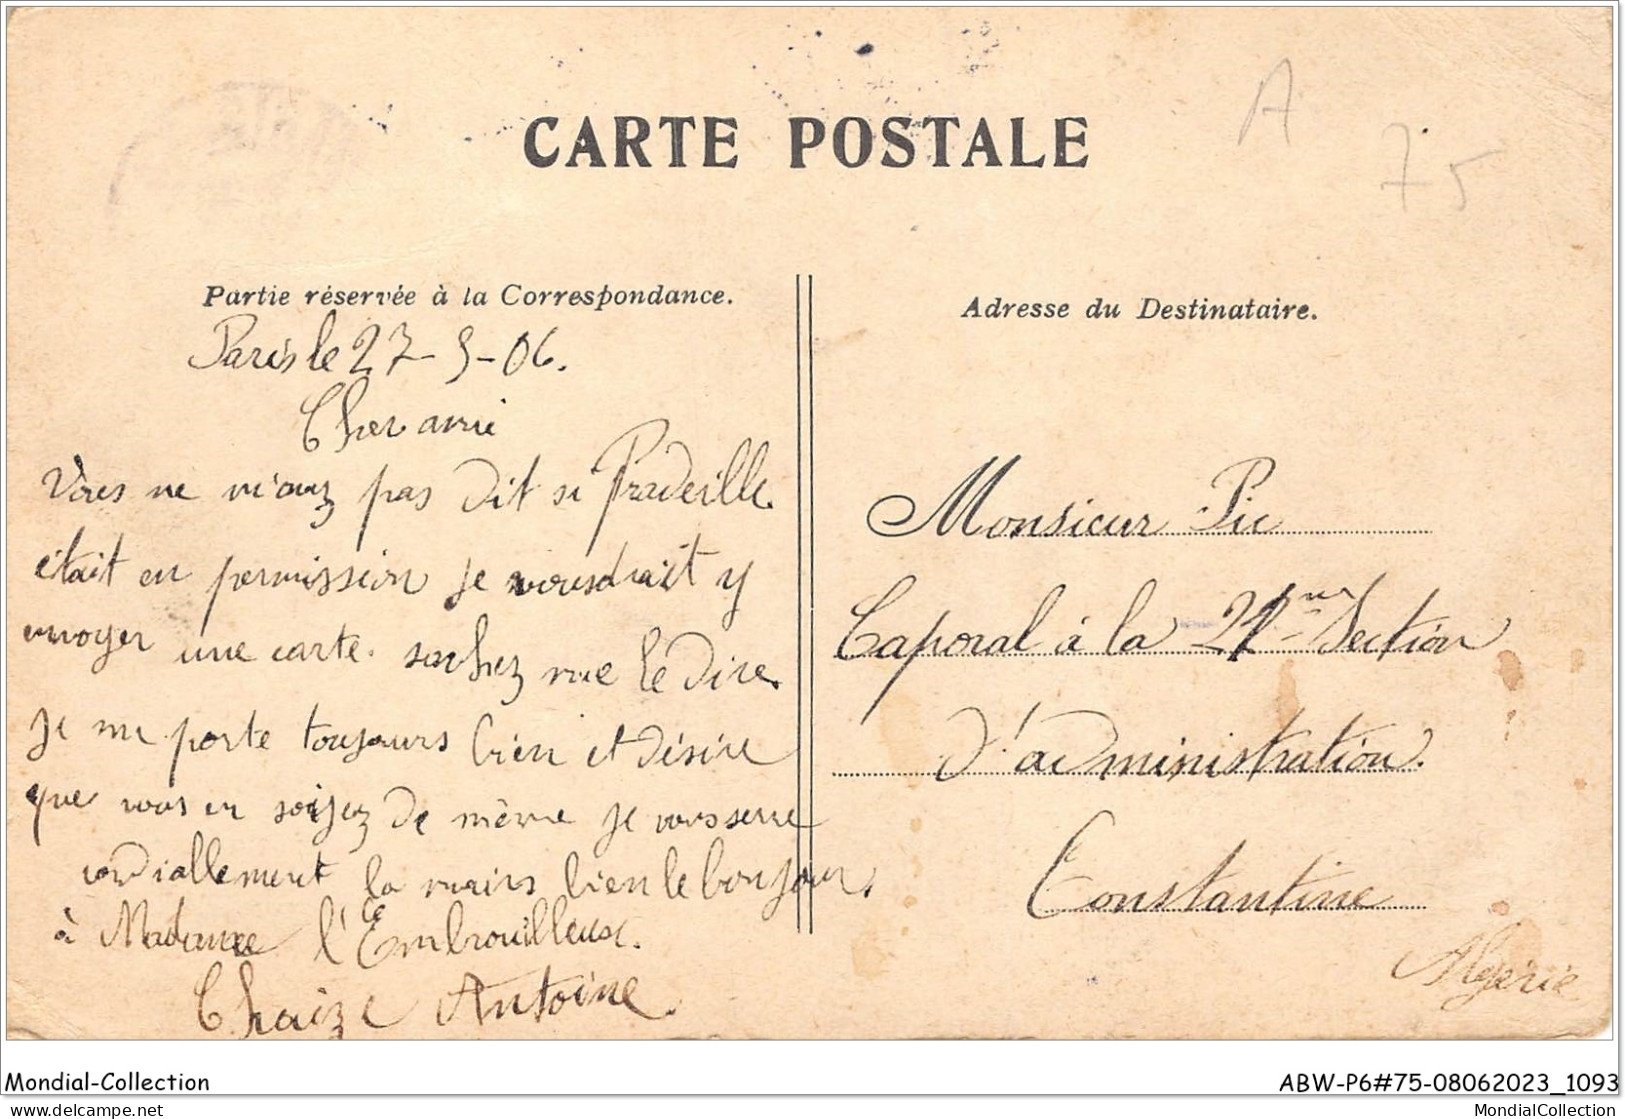 A
75
CARTE POSTALE
Partie réservée à la Correspondance.
Paris le 27-5-06.
Cher ami
Vous ne m'avez pas dit si Pradeille
était en permission je vousdrait y
envoyer une carte. sachez me le dire.
Je me porte toujours bien et désire
que vous en soijez de même je vous serre
cordiallement la main bien le bonjour,
à Madame l'Embrouilleuse.
Chaize Antoine.
Adresse du Destinataire.
Monsieur Pic
Caporal à la Section
d'administration.
Constantine
Algérie
Mondial-Collection
ABW-P6#75-08062023_1093
www.delcampe.net
MondialCollection